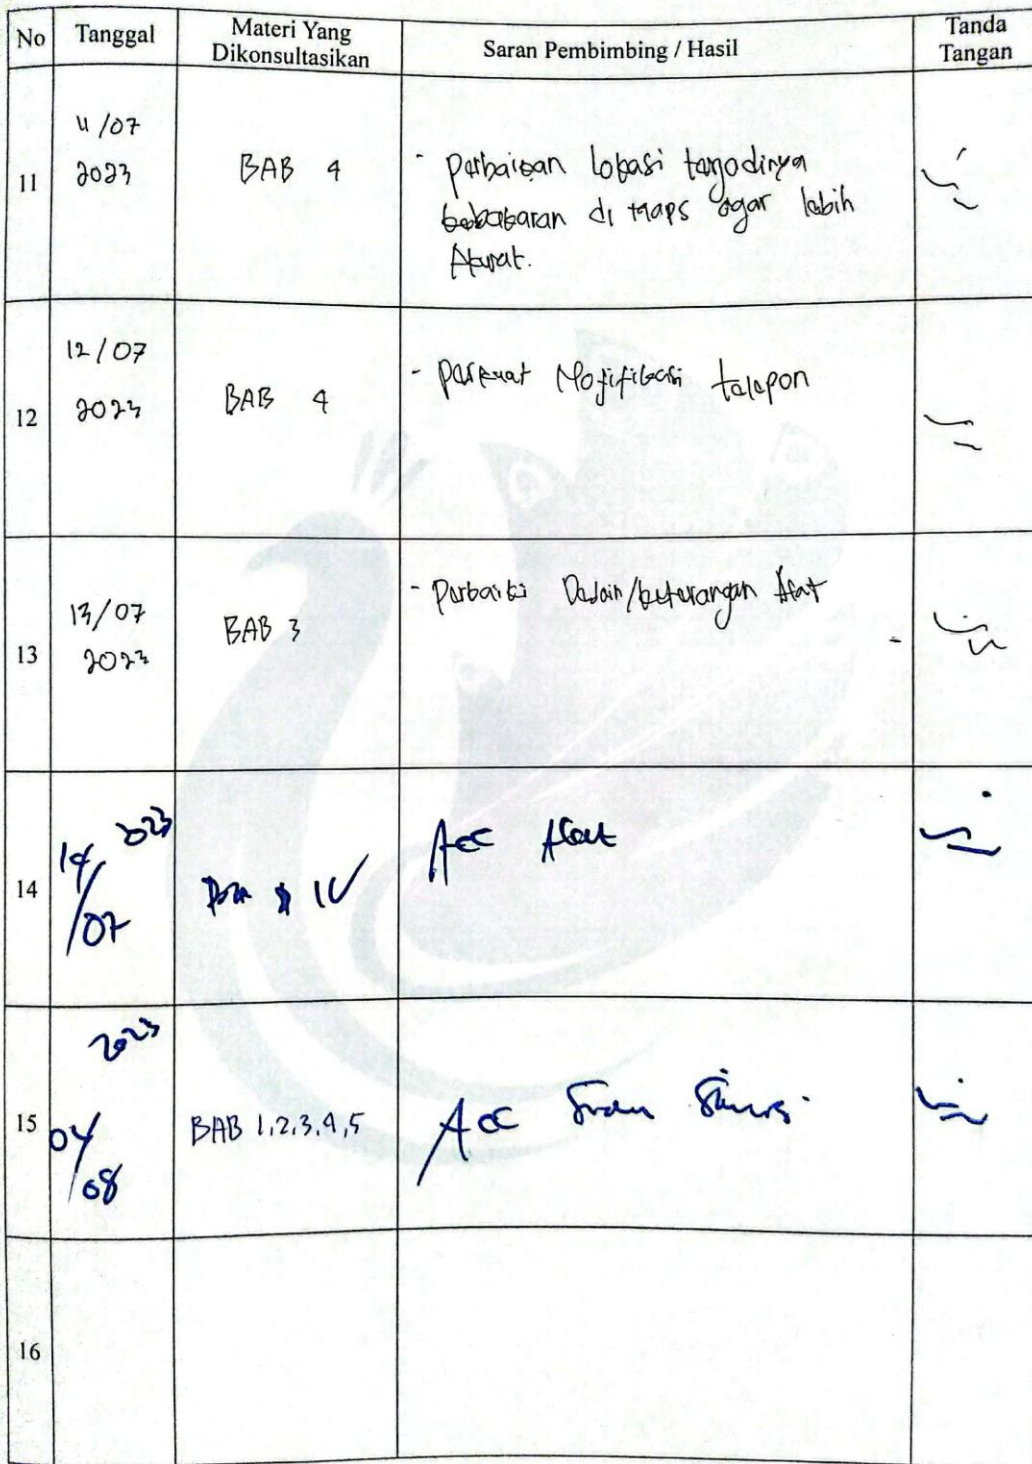 No Tanggal Materi Yang Dikonsultasikan Saran Pembimbing / Hasil Tanda Tangan
11 11/07 2023 BAB 4 - Perbaikan lokasi terjadinya
kebakaran di Maps agar lebih
Akurat.
12 12/07 2023 BAB 4 - Perkuat Notifikasi telepon
13 13/07 2023 BAB 3 - Perbaiki Desain/keterangan Alat
14 14/07 2023 IV Acc Alat
15 04/08 2023 BAB 1,2,3,4,5 Acc
16